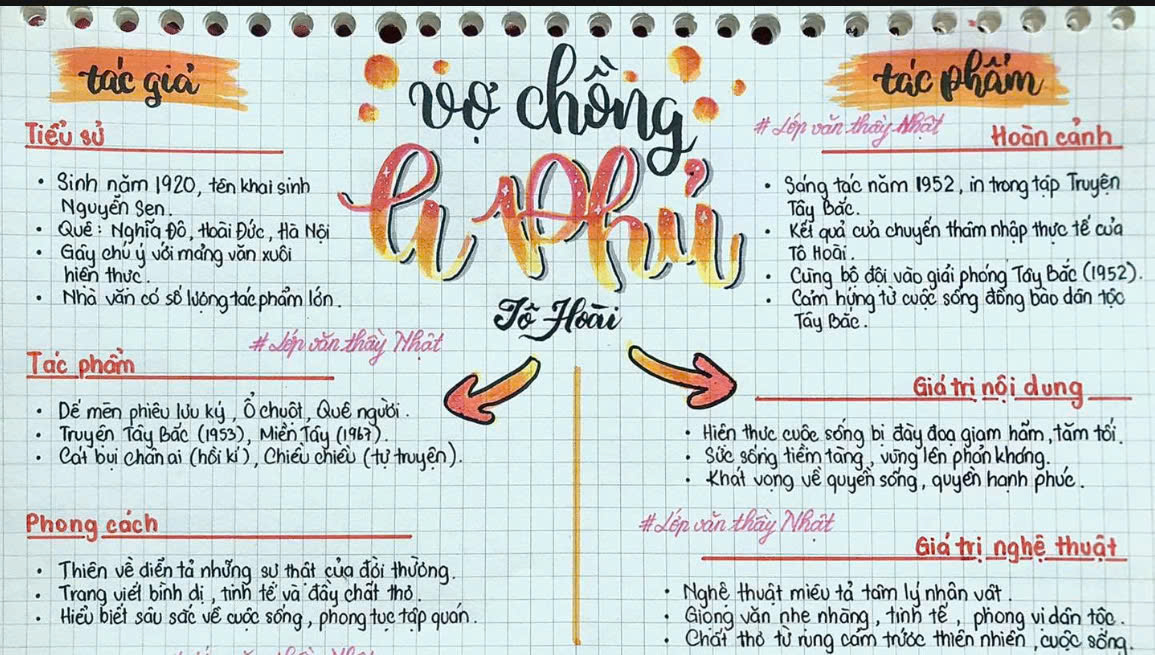 vợ chồng
A Phủ
Tô Hoài
tác giả
Tiểu sử
• Sinh năm 1920, tên khai sinh
Nguyễn Sen.
• Quê: Nghĩa Đô, Hoài Đức, Hà Nội
• Gây chú ý với mảng văn xuôi
hiện thực.
• Nhà văn có số lượng tác phẩm lớn.
#Lớp văn thầy Nhật
Tác phẩm
• Dế mèn phiêu lưu ký, Ổ chuột, Quê người.
• Truyện Tây Bắc (1953), Miền Tây (1967).
• Cát bụi chân ai (hồi kí), Chiều chiều (tự truyện).
Phong cách
• Thiên về diễn tả những sự thật của đời thường.
• Trang viết bình dị, tinh tế và đầy chất thơ.
• Hiểu biết sâu sắc về cuộc sống, phong tục tập quán.
tác phẩm
#Lớp văn thầy Nhật
Hoàn cảnh
• Sáng tác năm 1952, in trong tập Truyện
Tây Bắc.
• Kết quả của chuyến thâm nhập thực tế của
Tô Hoài.
• Cùng bộ đội vào giải phóng Tây Bắc (1952).
• Cảm hứng từ cuộc sống đồng bào dân tộc
Tây Bắc.
Giá trị nội dung
• Hiện thực cuộc sống bị đày đoạ giam hãm, tăm tối.
• Sức sống tiềm tàng, vùng lên phản kháng.
• Khát vọng về quyền sống, quyền hạnh phúc.
#Lớp văn thầy Nhật
Giá trị nghệ thuật
• Nghệ thuật miêu tả tâm lý nhân vật.
• Giọng văn nhẹ nhàng, tinh tế, phong vị dân tộc.
• Chất thơ từ rung cảm trước thiên nhiên, cuộc sống.